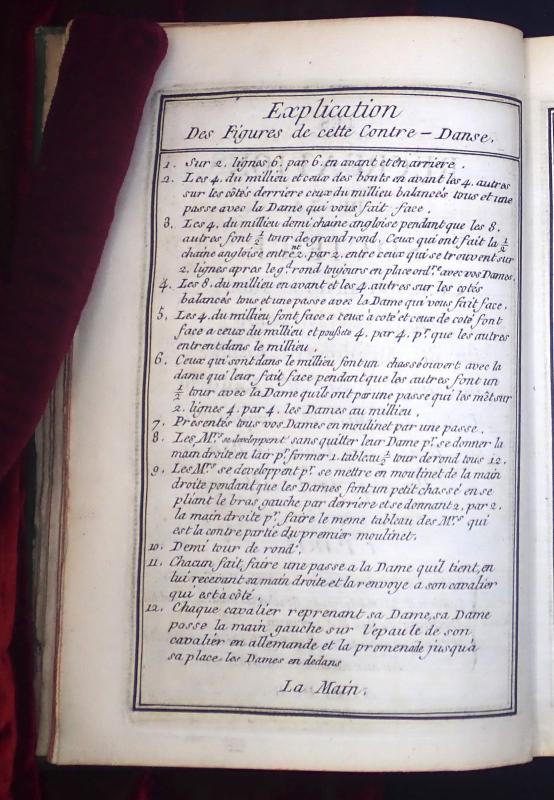 Explication
Des Figures de cette Contre-Danse.
1. Sur 2. lignes 6. par 6. en avant et en arriere.
2. Les 4. du millieu et ceux des bouts en avant les 4. autres
sur les côtés derriere ceux du millieu balancés tous et une
passe avec la Dame qui vous fait face.
3. Les 4. du millieu demi chaine angloise pendant que les 8.
autres font ½ tour de grand rond. Ceux qui ont fait la ½
chaine angloise entrent 2. par 2. entre ceux qui se trouvent sur
2. lignes apres le gd. rond toujours en place ordre. avec vos Dames.
4. Les 8. du millieu en avant et les 4. autres sur les cotés
balancés tous et une passe avec la Dame qui vous fait face.
5. Les 4. du millieu font face a ceux à coté et ceux de coté font
face a ceux du millieu et poussete 4. par 4. pr. que les autres
entrent dans le millieu.
6. Ceux qui sont dans le millieu font un chassé ouvert avec la
dame qui leur fait face pendant que les autres font un
½ tour avec la Dame qu'ils ont par une passe qui les met sur
2. lignes 4. par 4. les Dames au millieu.
7. Présentés tous vos Dames en moulinet par une passe.
8. Les Mrs. se developpent sans quitter leur Dame pr. se donner la
main droite en l'air pr. former 1. tableau ½ tour de rond tous 12.
9. Les Mrs. se developpent pr. se mettre en moulinet de la main
droite pendant que les Dames font un petit chassé en se
pliant le bras gauche par derriere et se donnant 2. par 2.
la main droite pr. faire le meme tableau des Mrs. qui
est la contre partie du premier moulinet.
10. Demi tour de rond.
11. Chacun fait faire une passe a la Dame qu'il tient, en
lui recevant sa main droite et la renvoye a son cavalier
qui est à côté.
12. Chaque cavalier reprenant sa Dame, sa Dame
passe la main gauche sur l'epaule de son
cavalier en allemande et la promenade jusqu'à
sa place les Dames en dedans
La Main.